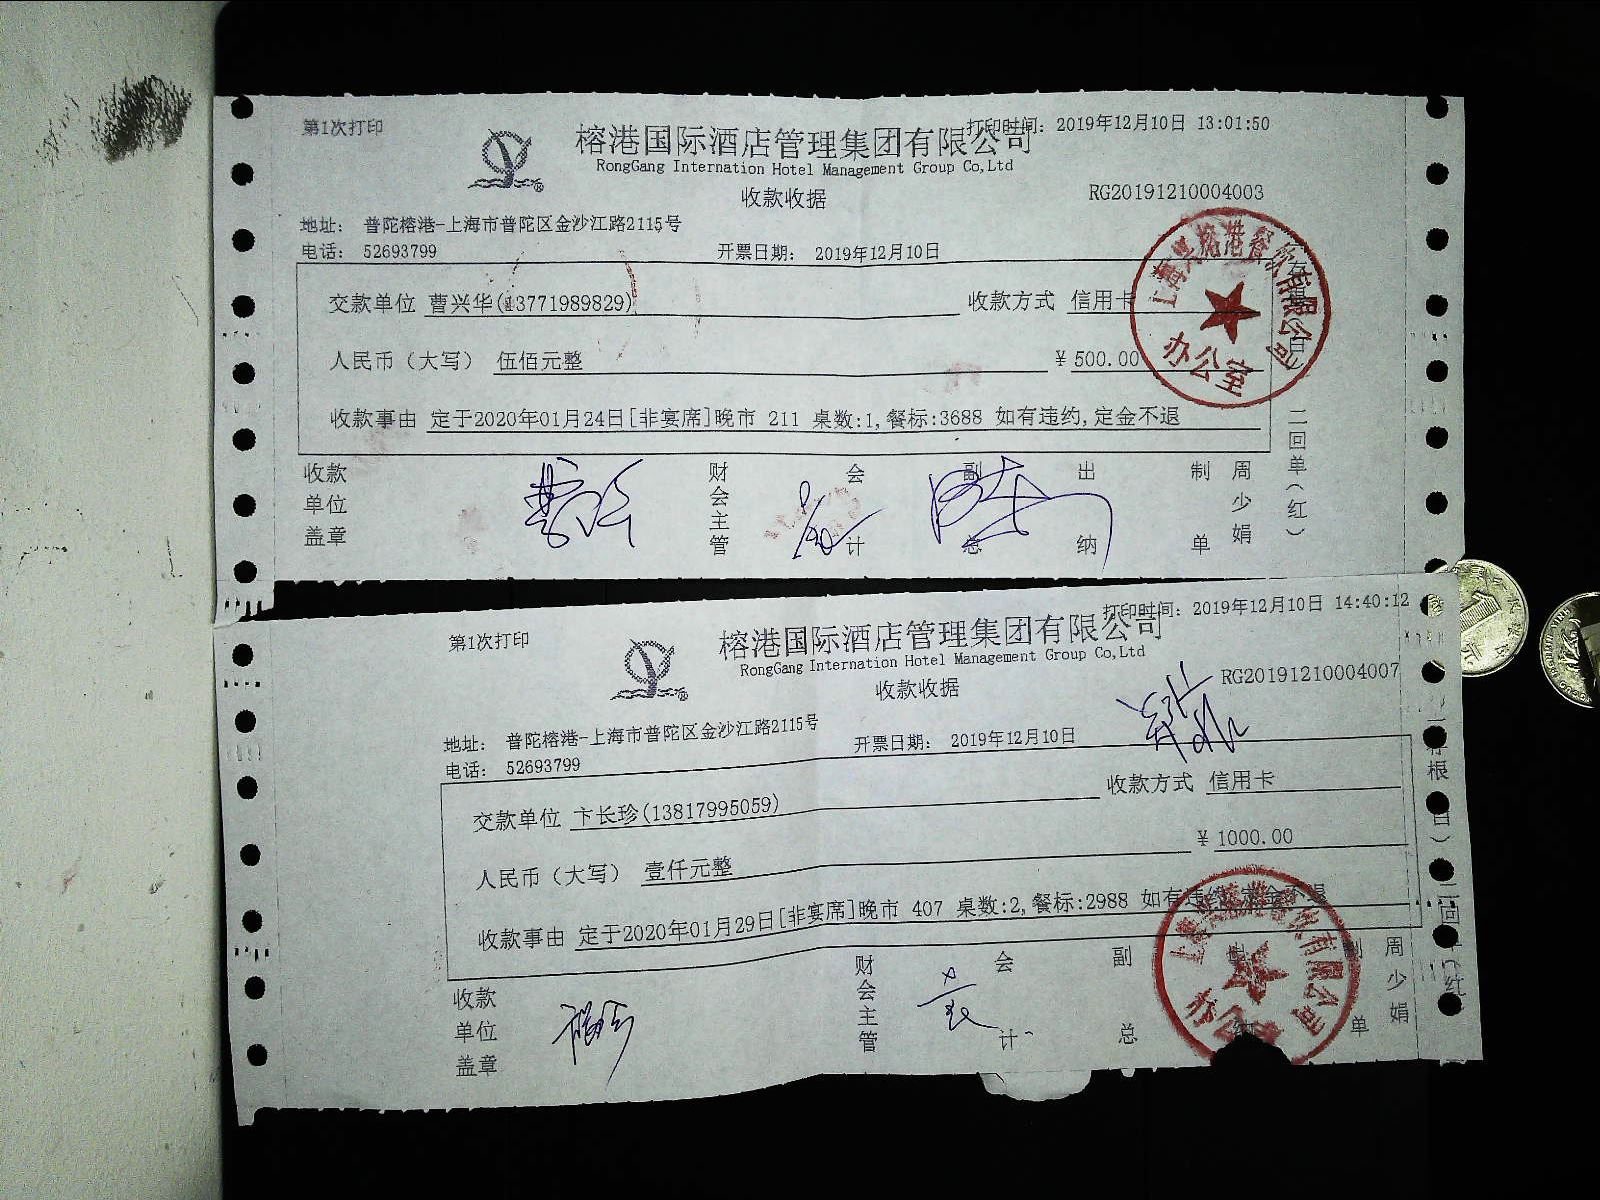 第1次打印
打印时间: 2019年12月10日 13:01:50
榕港国际酒店管理集团有限公司
RongGang Internation Hotel Management Group Co,Ltd
收款收据
RG20191210004003
地址: 普陀榕港-上海市普陀区金沙江路2115号
电话: 52693799
开票日期: 2019年12月10日
交款单位 曹兴华(13771989829)
收款方式 信用卡
人民币（大写） 伍佰元整
¥ 500.00
收款事由 定于2020年01月24日[非宴席]晚市 211 桌数:1,餐标:3688 如有违约,定金不退
收款单位盖章
财会主管
会计
副总
出纳
制单
周少娟
二回单(红)
榕港餐饮有限公司
办公室
第1次打印
打印时间: 2019年12月10日 14:40:12
榕港国际酒店管理集团有限公司
RongGang Internation Hotel Management Group Co,Ltd
收款收据
RG20191210004007
地址: 普陀榕港-上海市普陀区金沙江路2115号
电话: 52693799
开票日期: 2019年12月10日
交款单位 卞长珍(13817995059)
收款方式 信用卡
人民币（大写） 壹仟元整
¥ 1000.00
收款事由 定于2020年01月29日[非宴席]晚市 407 桌数:2,餐标:2988 如有违约,定金不退
收款单位盖章
财会主管
会计
副总
制单
周少娟
有限公司
办公